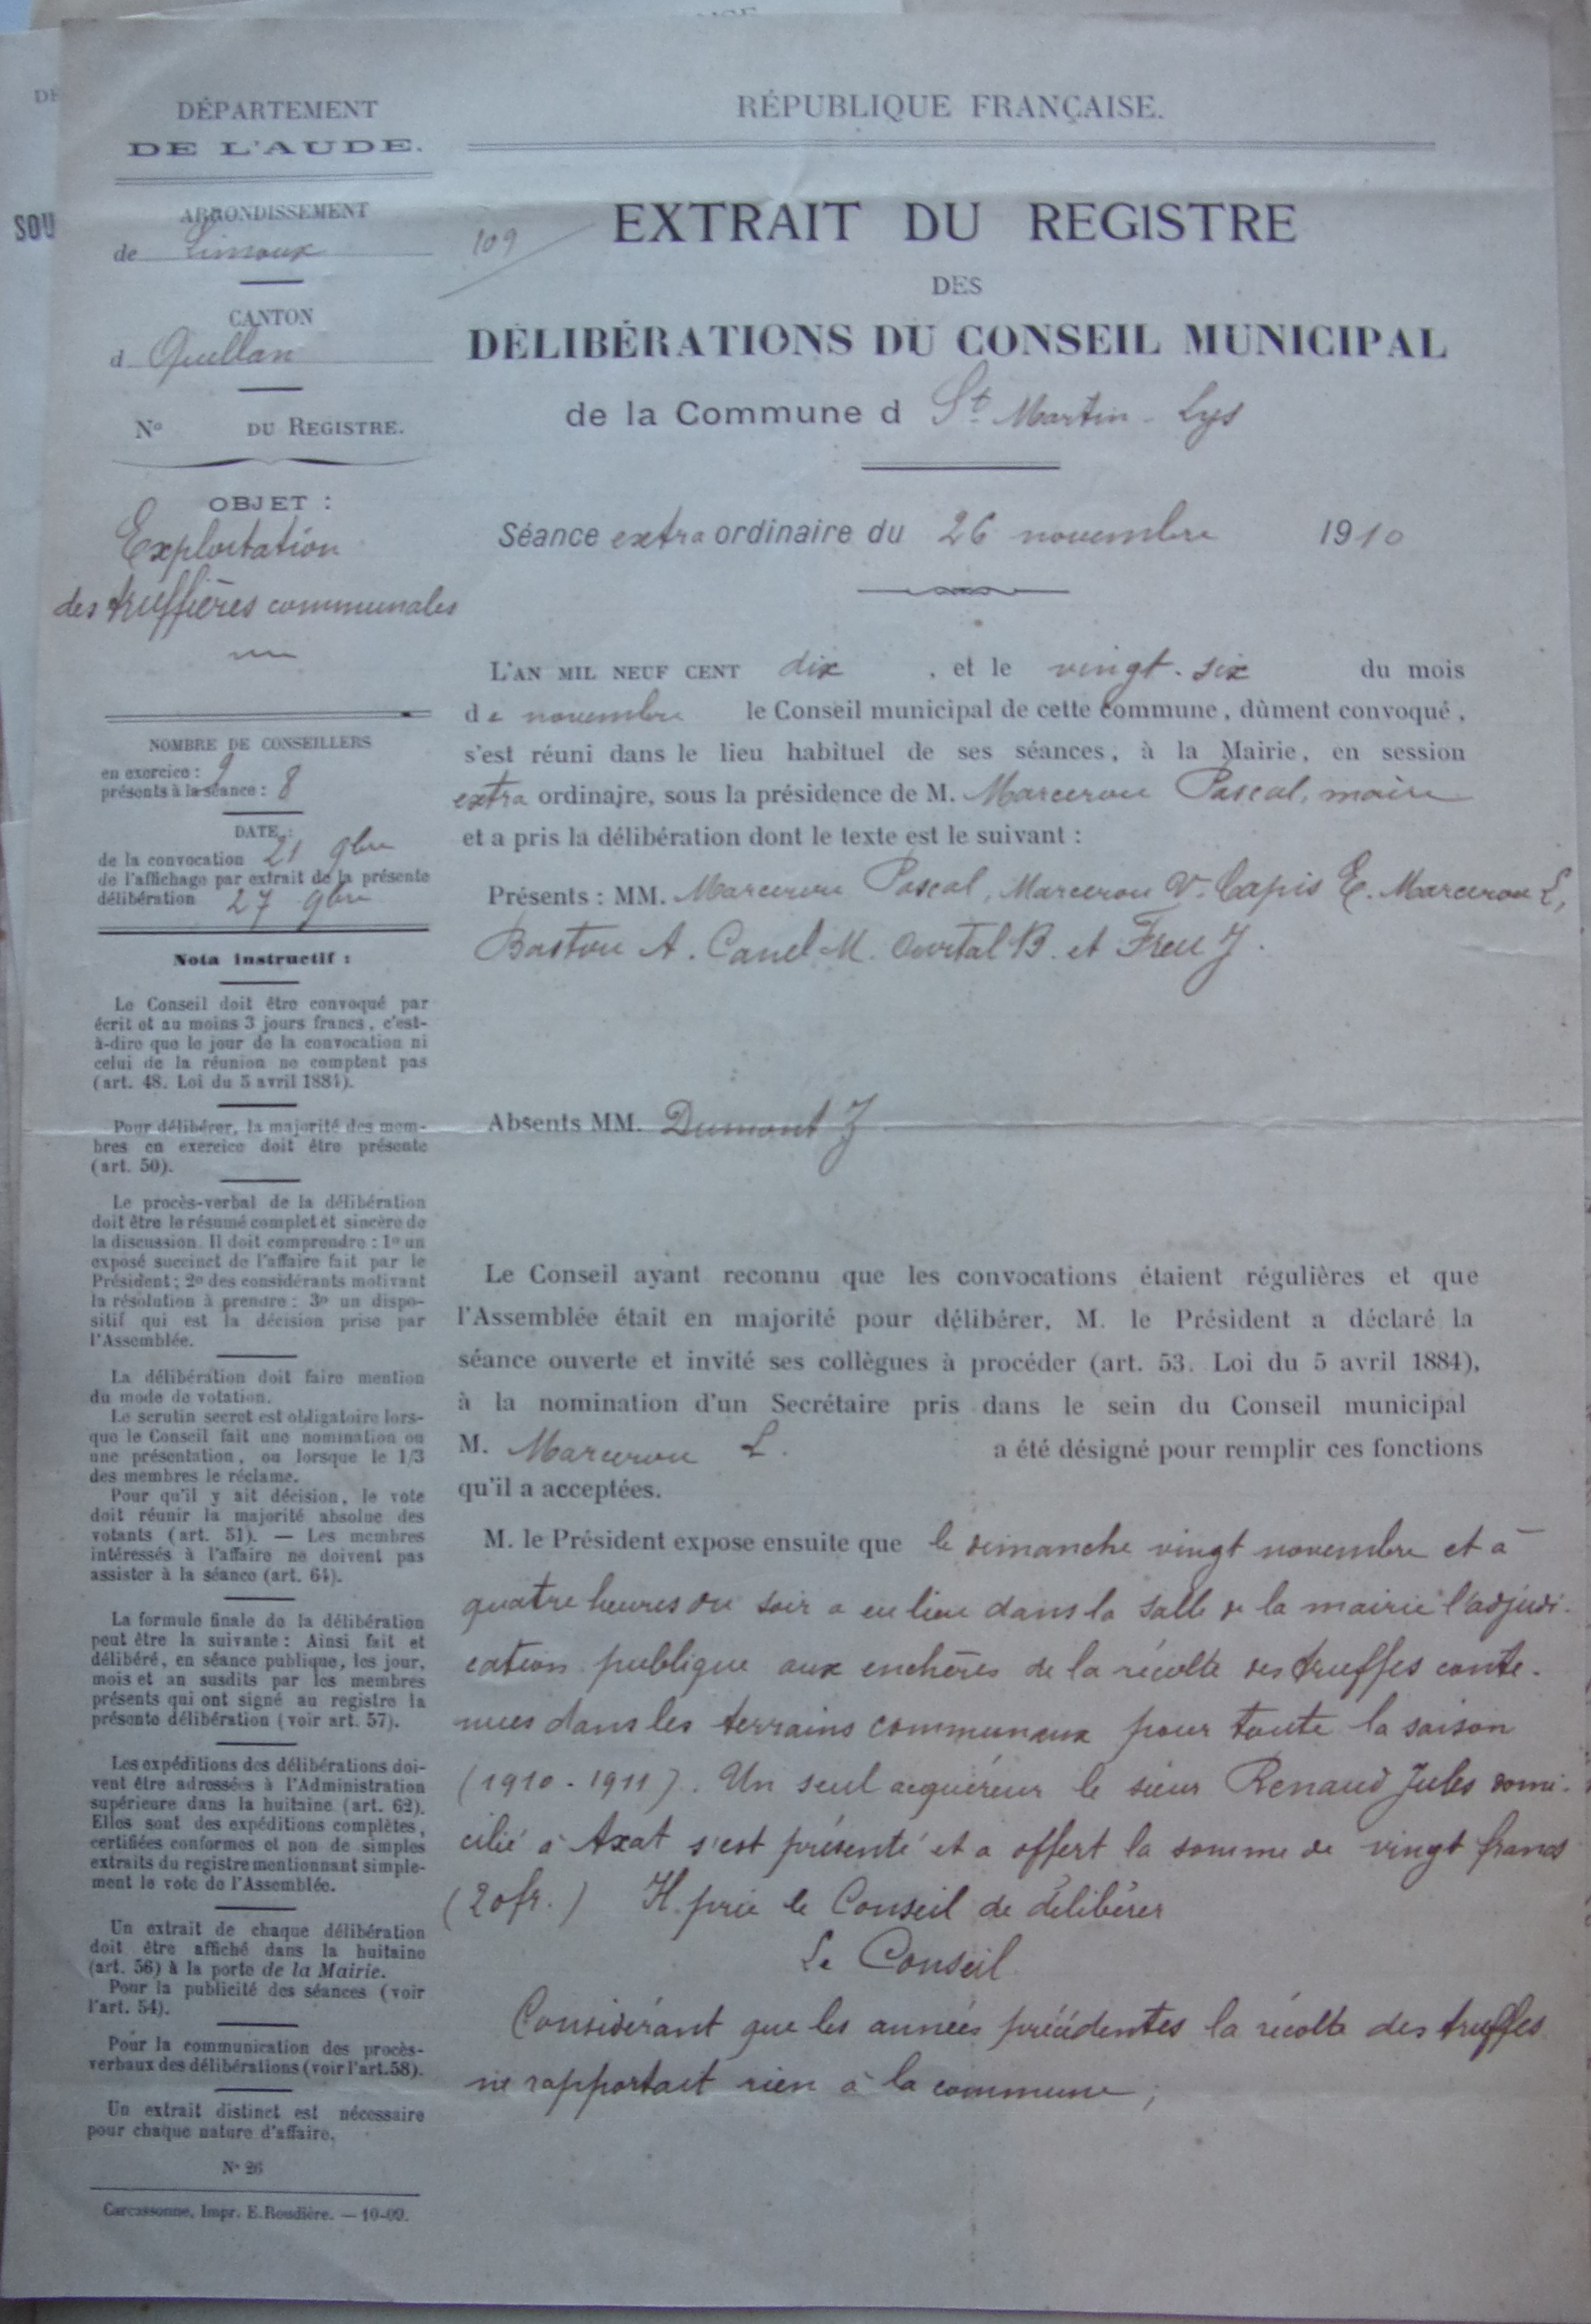 DÉPARTEMENT
DE L'AUDE.
ARRONDISSEMENT
de Limoux
CANTON
d Quillan
N° DU REGISTRE.
OBJET :
Exploitation
des truffières communales
NOMBRE DE CONSEILLERS
en exercice : 9
présents à la séance : 8
DATE :
de la convocation 21 9bre
de l'affichage par extrait de la présente
délibération 27 9bre
Nota instructif :
Le Conseil doit être convoqué par
écrit et au moins 3 jours francs, c'est-
à-dire que le jour de la convocation ni
celui de la réunion ne comptent pas
(art. 48. Loi du 5 avril 1884).
Pour délibérer, la majorité des mem-
bres en exercice doit être présente
(art. 50).
Le procès-verbal de la délibération
doit être le résumé complet et sincère de
la discussion. Il doit comprendre : 1° un
exposé succinct de l'affaire fait par le
Président ; 2° des considérants motivant
la résolution à prendre : 3° un dispo-
sitif qui est la décision prise par
l'Assemblée.
La délibération doit faire mention
du mode de votation.
Le scrutin secret est obligatoire lors-
que le Conseil fait une nomination ou
une présentation, ou lorsque le 1/3
des membres le réclame.
Pour qu'il y ait décision, le vote
doit réunir la majorité absolue des
votants (art. 51). — Les membres
intéressés à l'affaire ne doivent pas
assister à la séance (art. 64).
La formule finale de la délibération
peut être la suivante : Ainsi fait et
délibéré, en séance publique, les jour,
mois et an susdits par les membres
présents qui ont signé au registre la
présente délibération (voir art. 57).
Les expéditions des délibérations doi-
vent être adressées à l'Administration
supérieure dans la huitaine (art. 62).
Elles sont des expéditions complètes,
certifiées conformes et non de simples
extraits du registre mentionnant simple-
ment le vote de l'Assemblée.
Un extrait de chaque délibération
doit être affiché dans la huitaine
(art. 56) à la porte de la Mairie.
Pour la publicité des séances (voir
l'art. 54).
Pour la communication des procès-
verbaux des délibérations (voir l'art. 58).
Un extrait distinct est nécessaire
pour chaque nature d'affaire.
N° 26
Carcassonne, Impr. E. Roudière. — 10-09.
RÉPUBLIQUE FRANÇAISE.
109
EXTRAIT DU REGISTRE
DES
DÉLIBÉRATIONS DU CONSEIL MUNICIPAL
de la Commune d St Martin - Lys
Séance extra ordinaire du 26 novembre 1910
L'AN MIL NEUF CENT dix , et le vingt-six du mois
de novembre le Conseil municipal de cette commune, dûment convoqué,
s'est réuni dans le lieu habituel de ses séances, à la Mairie, en session
extra ordinaire, sous la présidence de M. Marcerou Pascal, maire
et a pris la délibération dont le texte est le suivant :
Présents : MM. Marcerou Pascal, Marcerou V. Capis E. Marcerou L,
Bastou A. Canel M. Courtal B. et Freu J.
Absents MM. Dumont J
Le Conseil ayant reconnu que les convocations étaient régulières et que
l'Assemblée était en majorité pour délibérer, M. le Président a déclaré la
séance ouverte et invité ses collègues à procéder (art. 53. Loi du 5 avril 1884),
à la nomination d'un Secrétaire pris dans le sein du Conseil municipal
M. Marcerou L. a été désigné pour remplir ces fonctions
qu'il a acceptées.
M. le Président expose ensuite que le dimanche vingt novembre et à
quatre heures du soir a eu lieu dans la salle de la mairie l'adjudi-
cation publique aux enchères de la récolte des truffes conte-
nues dans les terrains communaux pour toute la saison
(1910-1911). Un seul acquéreur le sieur Renaud Jules domi-
cilié à Axat s'est présenté et a offert la somme de vingt francs
(20 fr.) Il prie le Conseil de délibérer
Le Conseil
Considérant que les années précédentes la récolte des truffes
ne rapportait rien à la commune ;
SOU